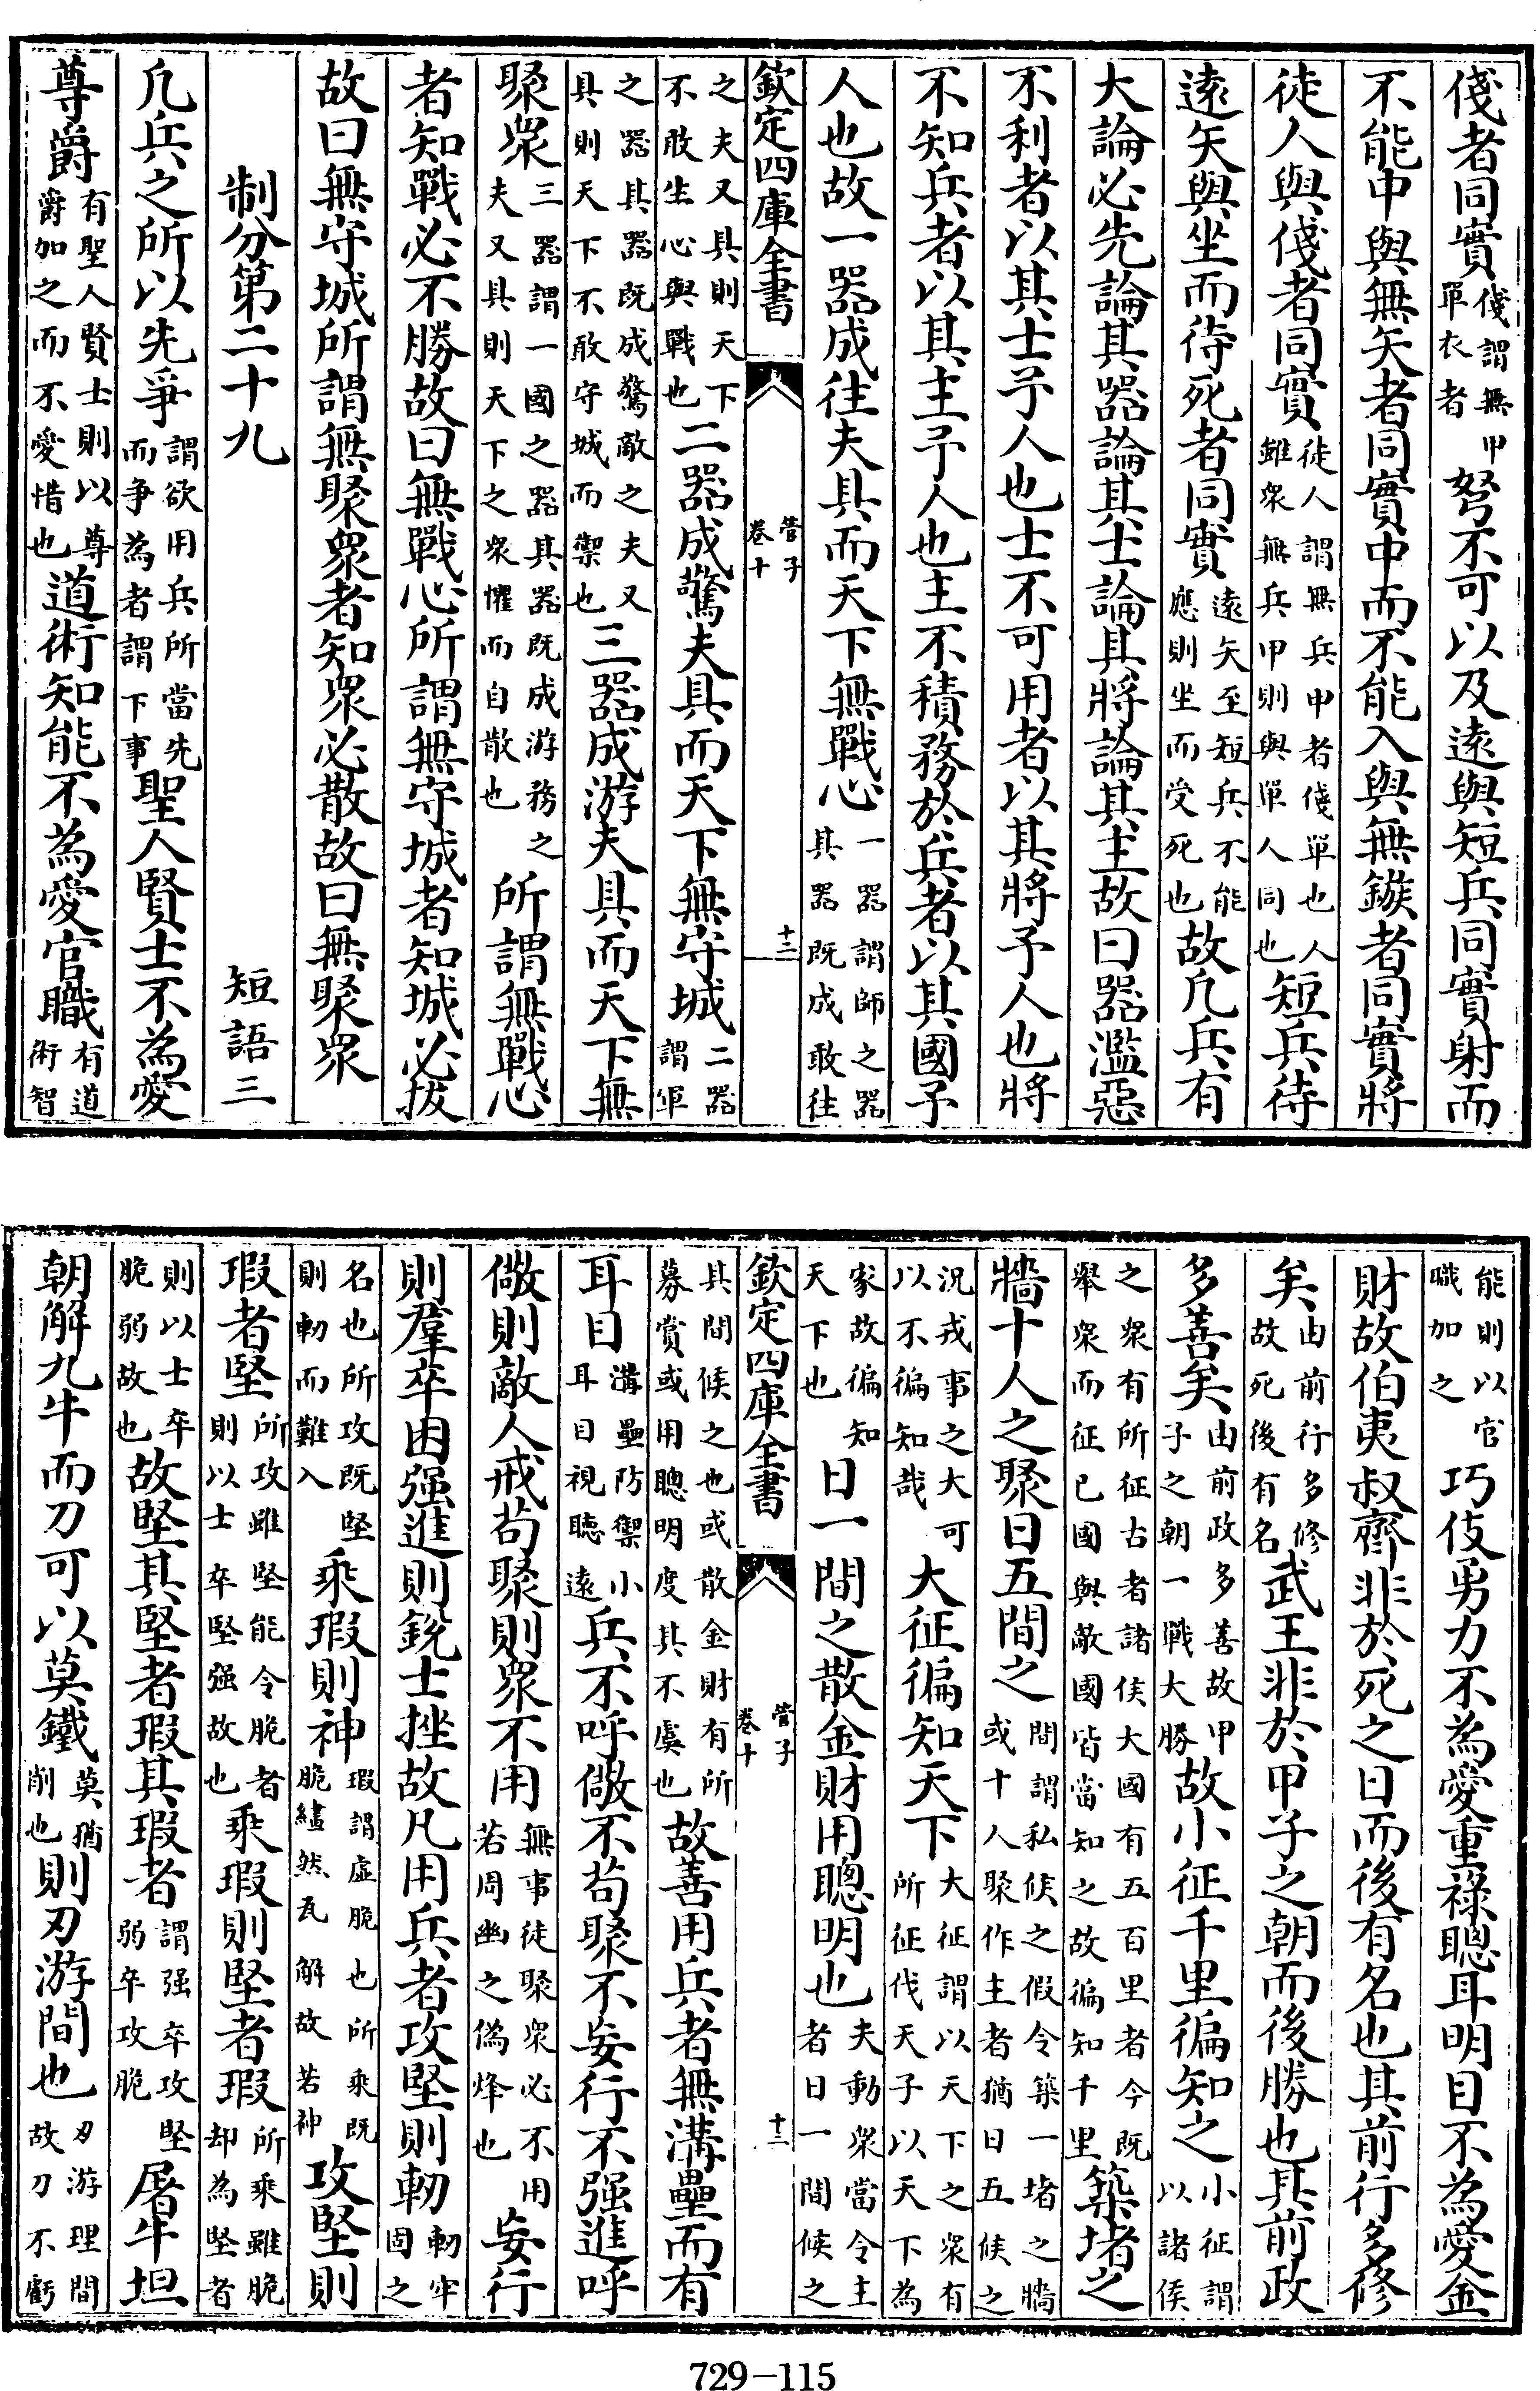 俴者同實俴謂無甲單衣者弩不可以及遠與短兵同實射而
不能中與無矢者同實中而不能入與無鏃者同實將
徒人與俴者同實徒人謂無兵甲者俴單也人雖衆無兵甲則與單人同也短兵待
遠矢與坐而待死者同實遠矢至短兵不能應則坐而受死也故凡兵有
大論必先論其器論其士論其將論其主故曰器濫惡
不利者以其士予人也士不可用者以其將予人也將
不知兵者以其主予人也主不積務於兵者以其國予
人也故一器成往夫具而天下無戰心一器謂師之器其器既成敢往
欽定四庫全書 管子卷十 十二
之夫又具則天下不敢生心與戰也二器成驚夫具而天下無守城二器謂軍
之器其器既成驚敵之夫又具則天下不敢守城而禦也三器成游夫具而天下無
聚衆三器謂一國之器其器既成游務之夫又具則天下之衆懼而自散也所謂無戰心
者知戰必不勝故曰無戰心所謂無守城者知城必拔
故曰無守城所謂無聚衆者知衆必散故曰無聚衆
制分第二十九 短語三
凡兵之所以先爭謂欲用兵所當先而爭為者謂下事聖人賢士不為愛
尊爵有聖人賢士則以尊爵加之而不愛惜也道術知能不為愛官職有道術智
能則以官職加之巧伎勇力不為愛重祿聰耳明目不為愛金
財故伯夷叔齊非於死之日而後有名也其前行多修
矣由前行多修故死後有名武王非於甲子之朝而後勝也其前政
多善矣由前政多善故甲子之朝一戰大勝故小征千里徧知之小征謂以諸侯
之衆有所征古者諸侯大國有五百里者今既舉衆而征已國與敵國皆當知之故徧知千里築堵之
牆十人之聚日五間之間謂私候之假令築一堵之牆或十人聚作主者猶日五候之
況戎事之大可以不徧知哉大征徧知天下大征謂以天下之衆有所征伐天子以天下為
家故徧知天下也日一間之散金財用聰明也夫動衆當令主者日一間候之
欽定四庫全書 管子卷十 十三
其間候之也或散金財有所募賞或用聰明度其不虞也故善用兵者無溝壘而有
耳目溝壘防禦小耳目視聽遠兵不呼儆不苟聚不妄行不强進呼
儆則敵人戒苟聚則衆不用無事徒聚衆必不用若周幽之偽烽也妄行
則羣卒困强進則銳士挫故凡用兵者攻堅則軔軔牢固之
名也所攻既堅則軔而難入乘瑕則神瑕謂虛脆也所乘既脆繣然瓦解故若神攻堅則
瑕者堅所攻雖堅能令脆者則以士卒堅强故也乘瑕則堅者瑕所乘雖脆却為堅者
則以士卒脆弱故也故堅其堅者瑕其瑕者謂强卒攻堅弱卒攻脆屠牛坦
朝解九牛而刀可以莫鐵莫猶削也則刃游間也刃游理間故刀不虧
729-115